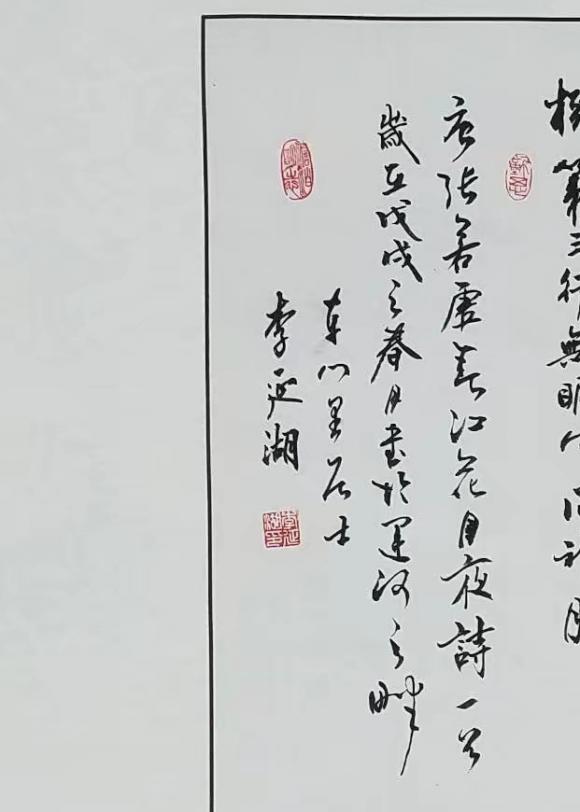 第三行無眠
唐張若虛春江花月夜詩一首
歲在戊戌之春月書於運河之畔
東門里居士
李延湖
李延湖印